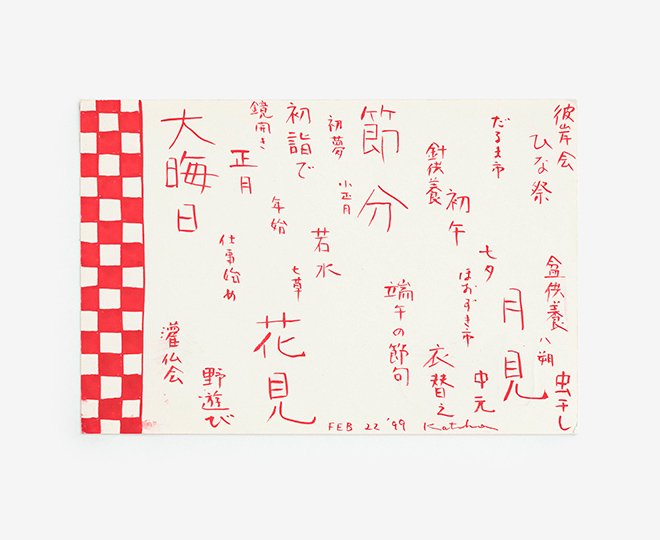 彼岸会
ひな祭
だるま市
節分
針供養
初午
初夢
小正月
初詣で
鏡開き
正月
大晦日
年始
若水
七草
仕事始め
七夕
ほおずき市
月見
盆供養
八朔
虫干し
中元
衣替え
端午の節句
花見
野遊び
灌仏会
FEB 22 '99